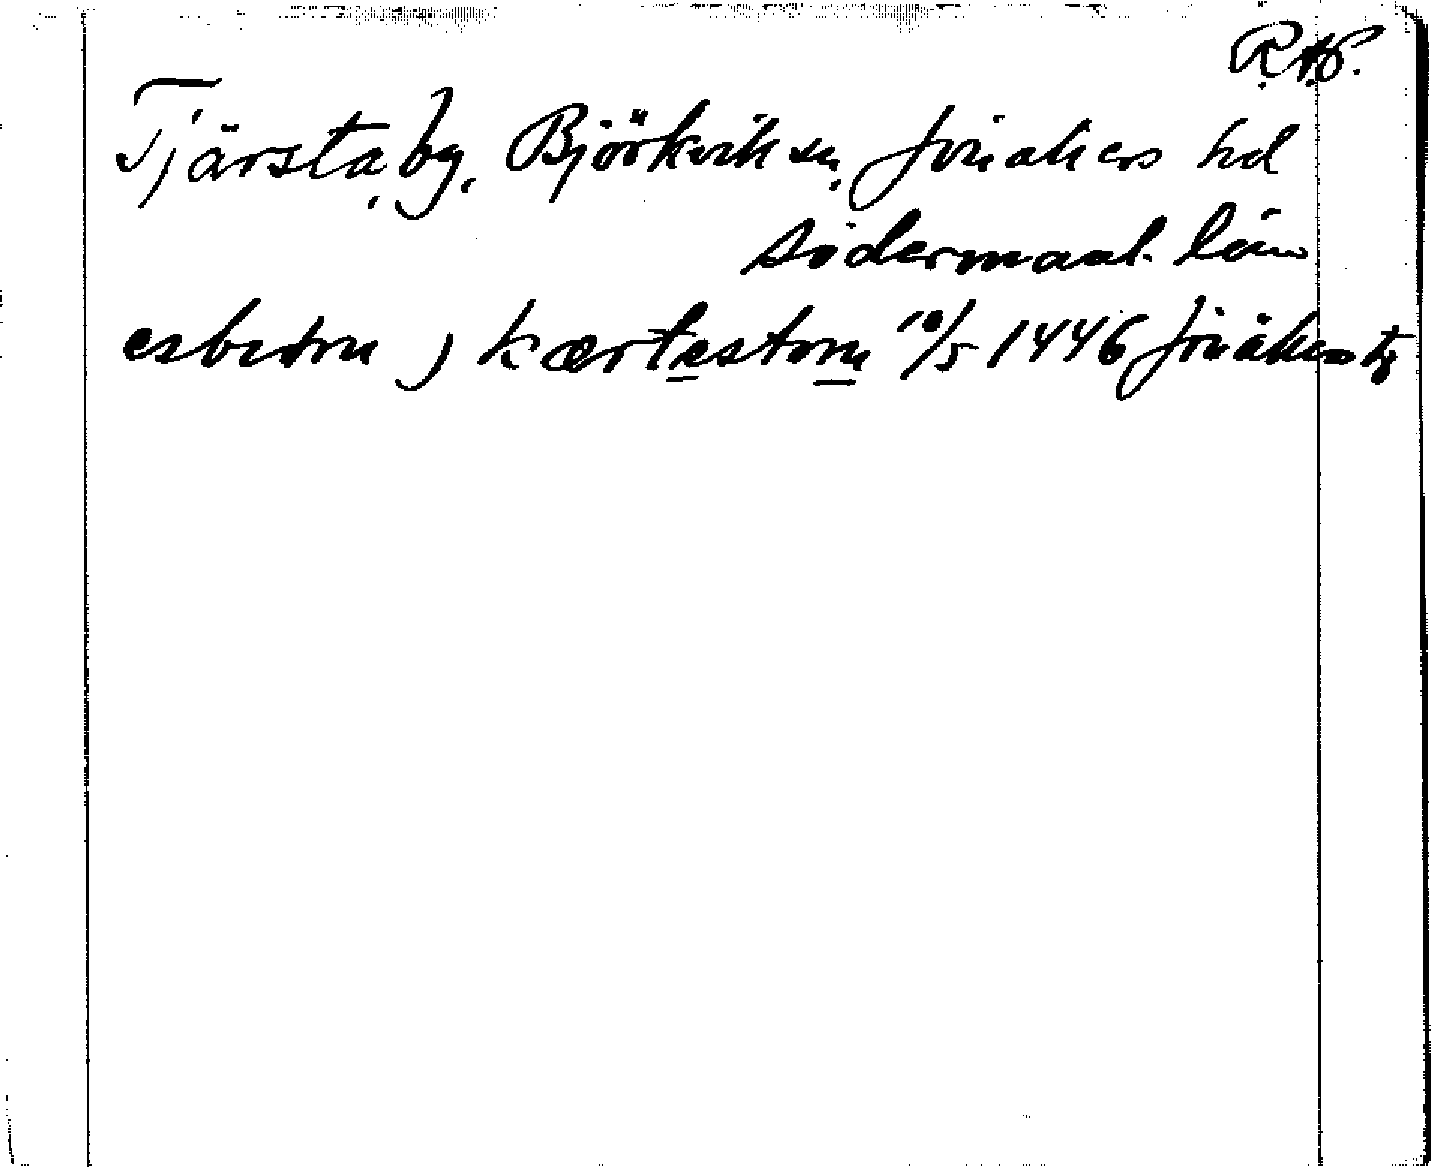 R.A.P.
Tjärsta, by, Björkvik sn, Jönåkers hd
Södermanl. län
esbiorn j kærlestom 10/5 1446 Jönåkers tg